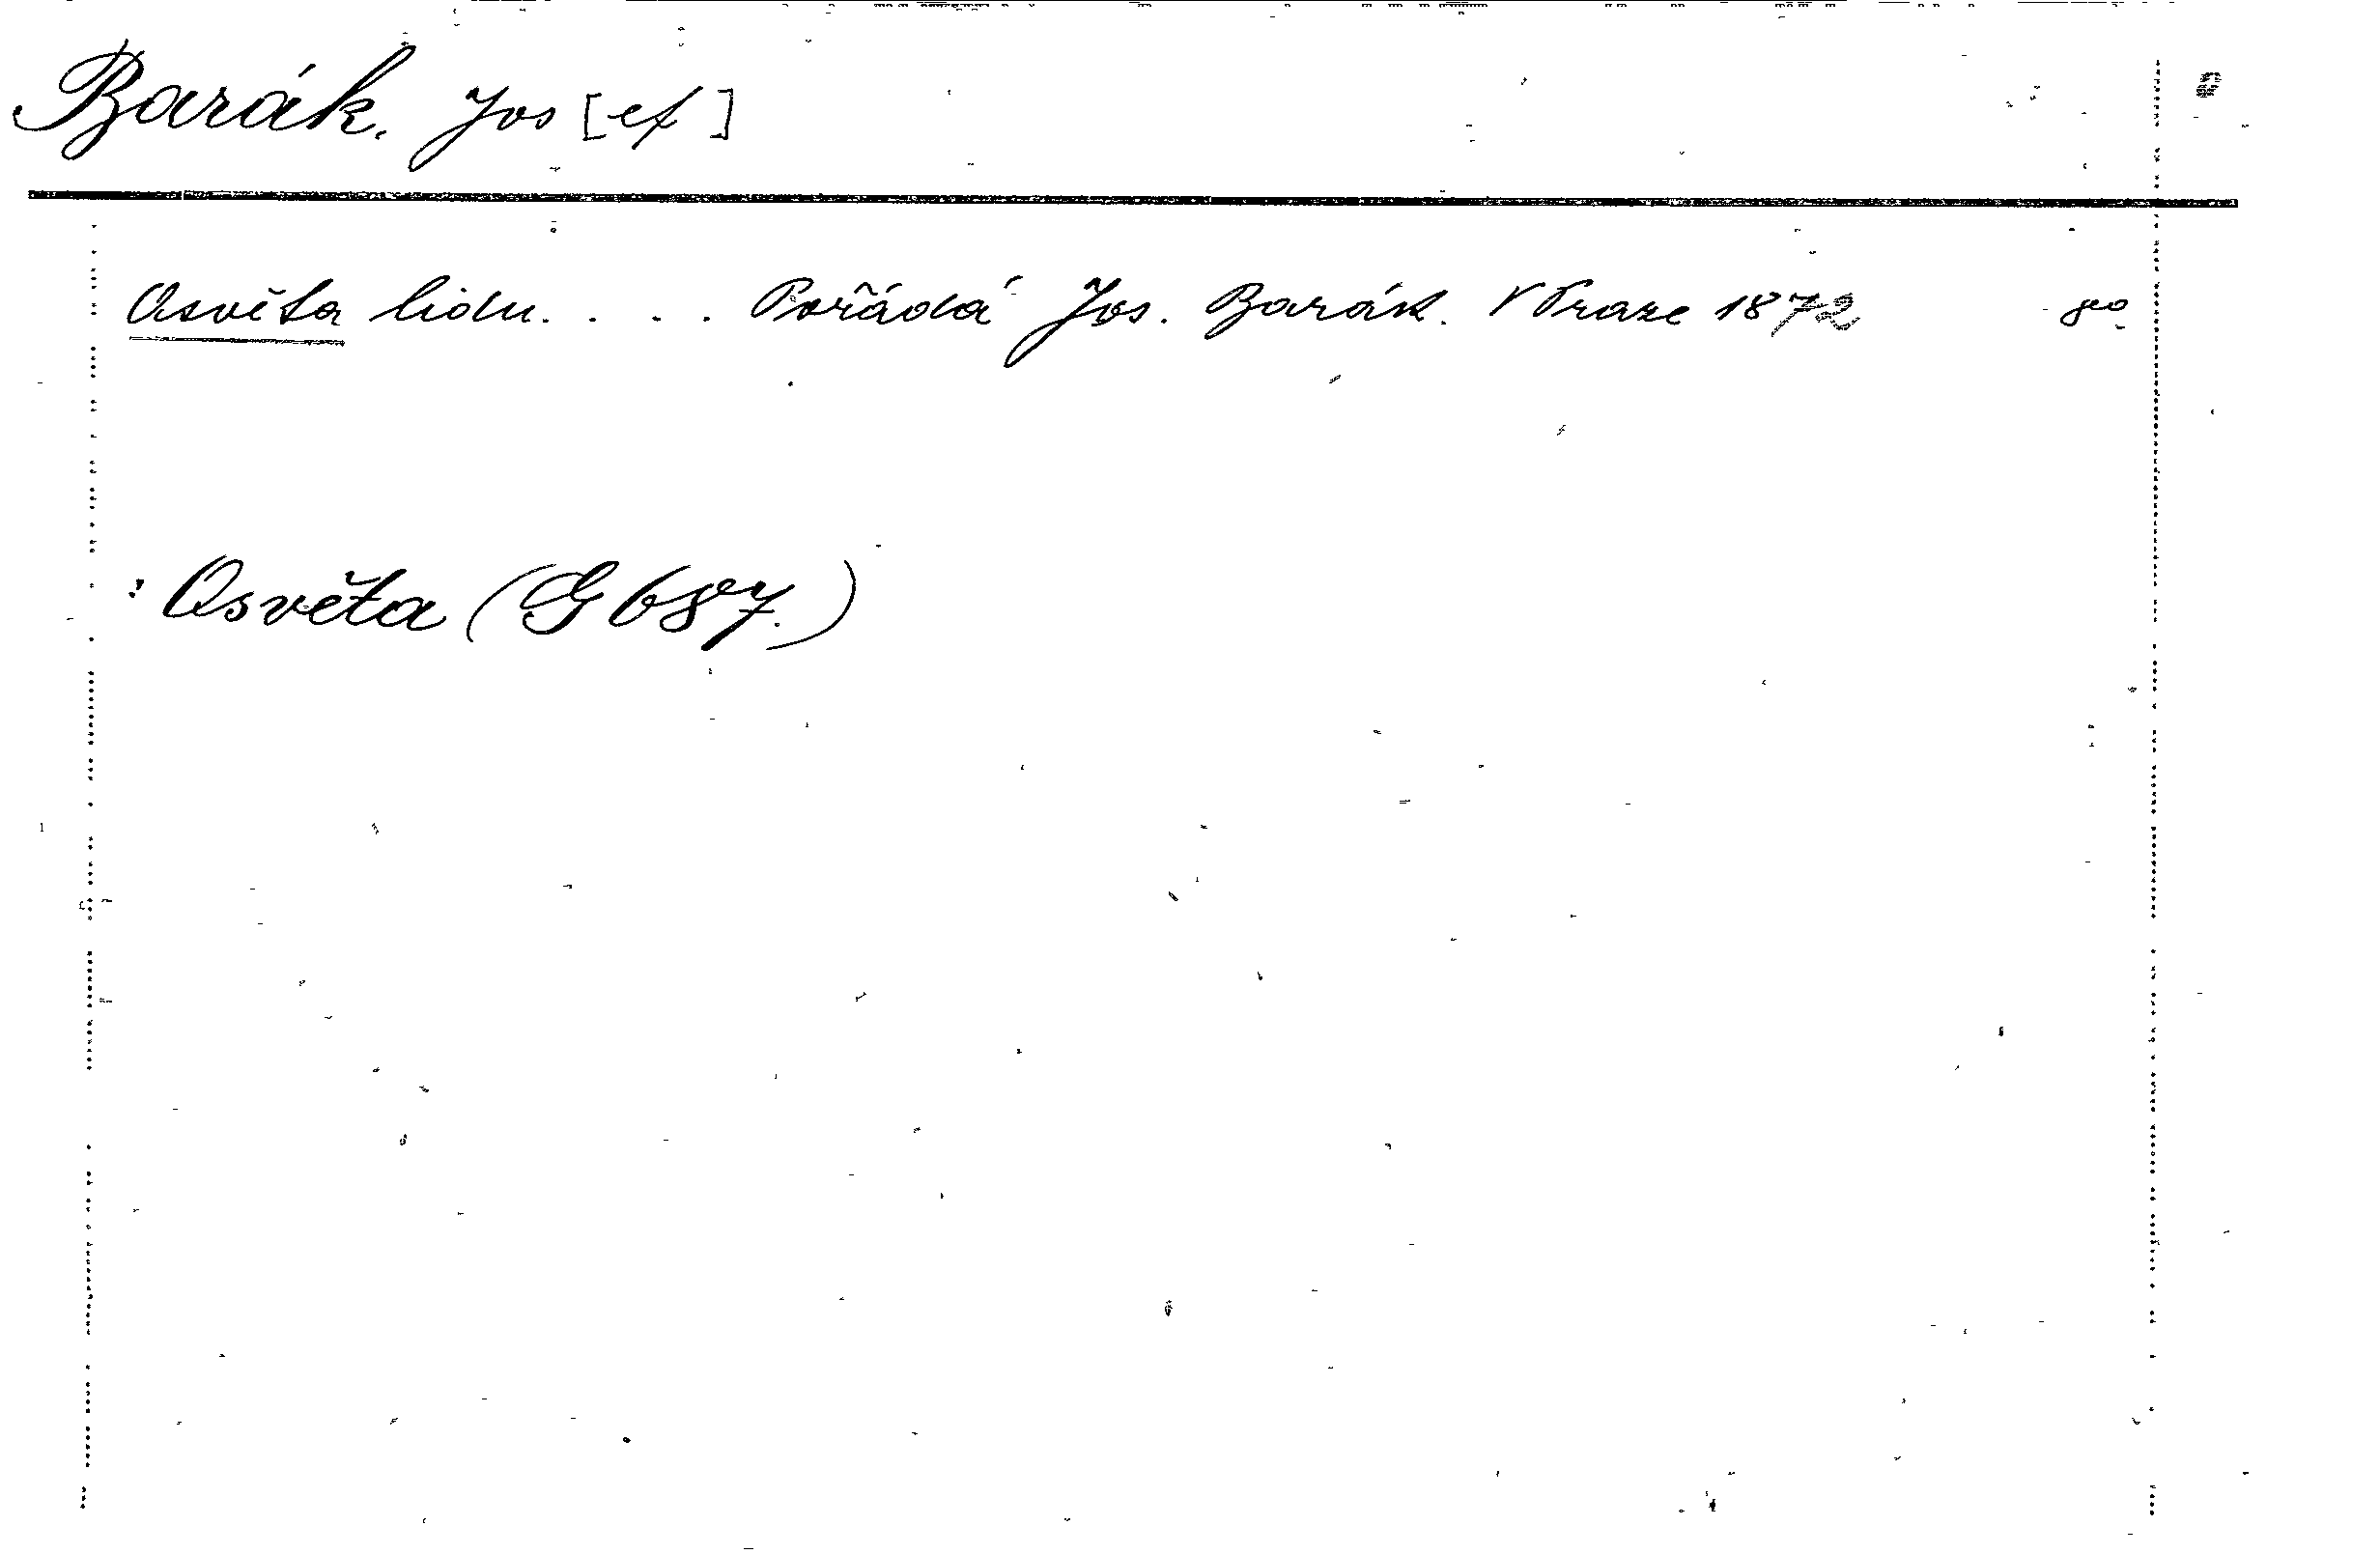 Barák. Jos[ef]
Osvěta lidu. . . . Pořádá Jos. Barák. V Praze 1872 8º
: Osvěta (G 687.)